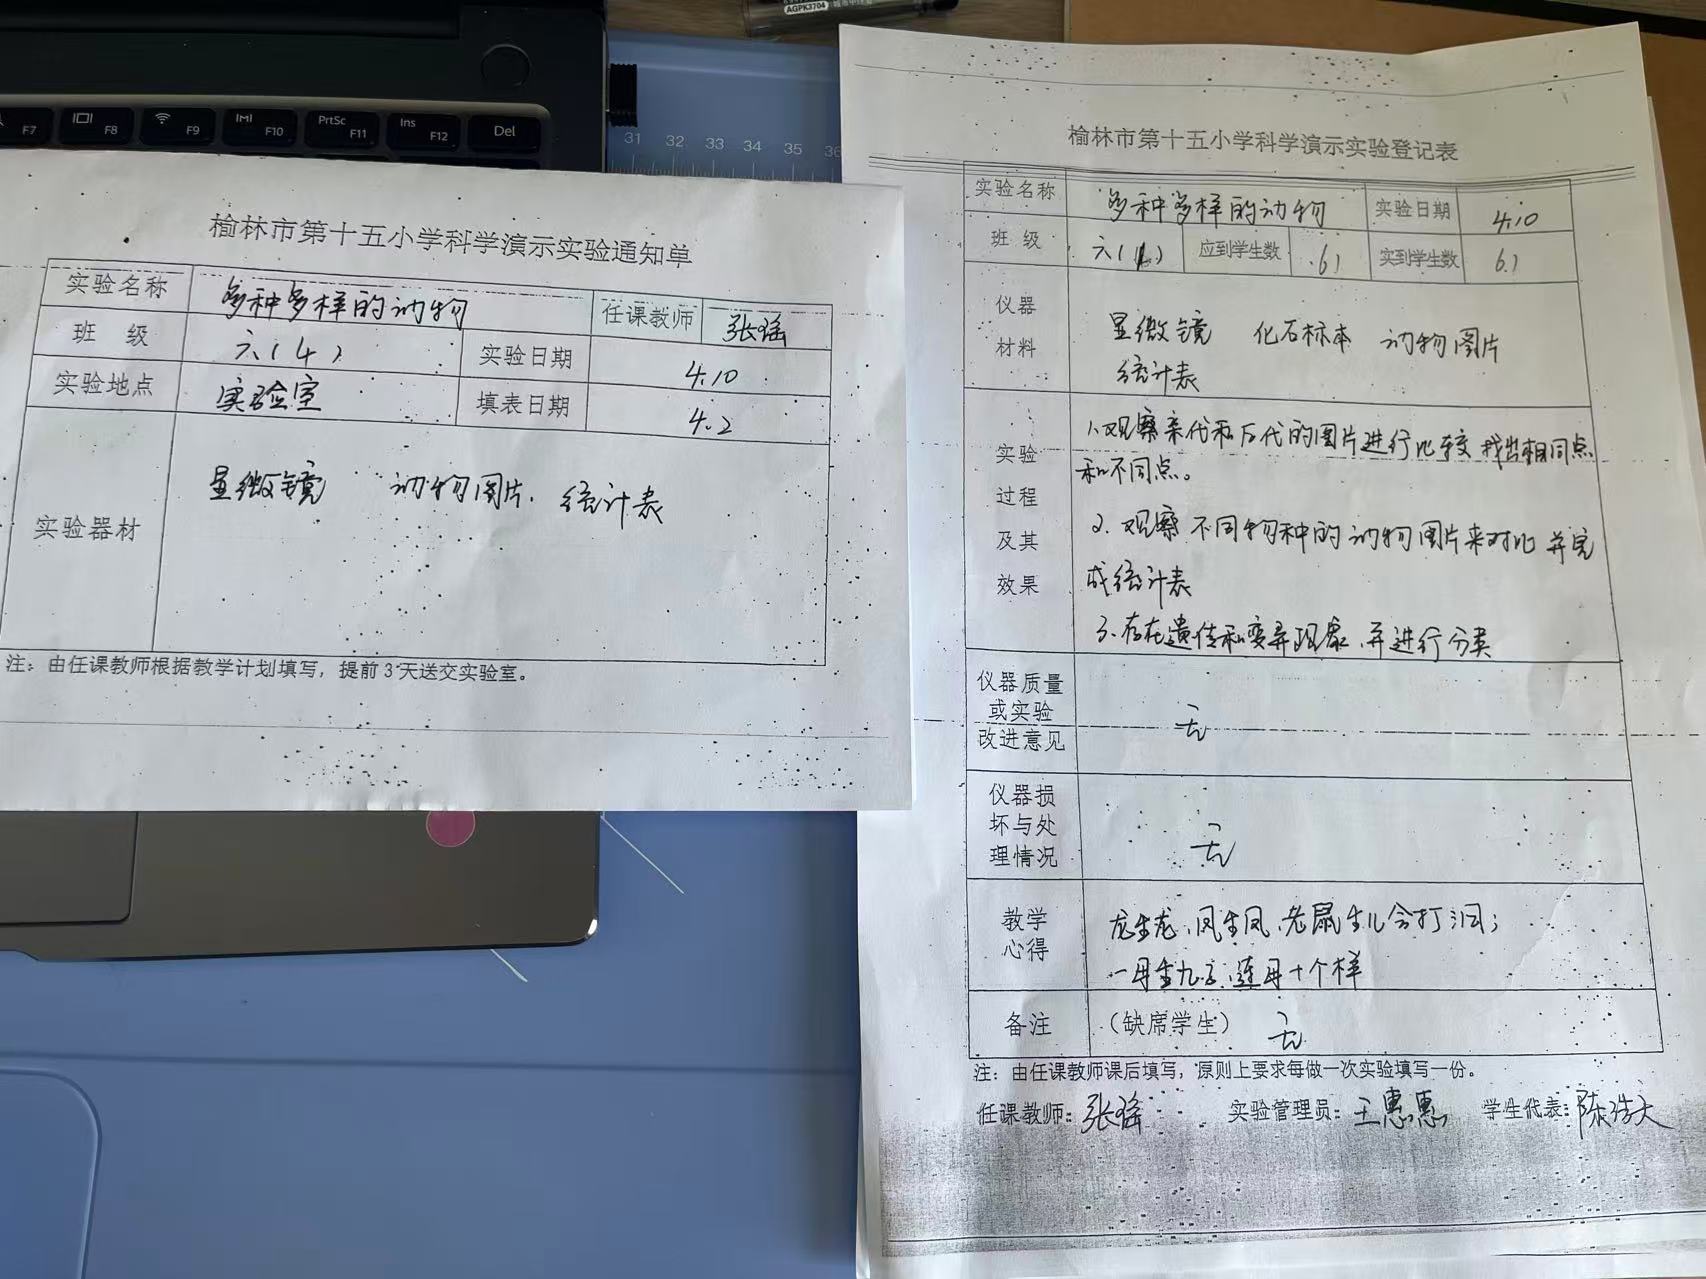 AGPK3704
F7
F8
F9
F10
PrtSc F11
Ins F12
Del
31 32 33 34 35 36
榆林市第十五小学科学演示实验通知单
实验名称 多种多样的动物 任课教师 张瑶
班 级 六(4) 实验日期 4.10
实验地点 实验室 填表日期 4.2
实验器材 显微镜 动物图片. 统计表
注：由任课教师根据教学计划填写，提前3天送交实验室。
榆林市第十五小学科学演示实验登记表
实验名称 多种多样的动物 实验日期 4.10
班 级 六(4) 应到学生数 61 实到学生数 61
仪器
材料
显微镜 化石标本 动物图片
统计表
实验
过程
及其
效果
1.观察亲代和后代的图片进行比较 找出相同点
和不同点。
2.观察不同物种的动物图片来对比 并完
成统计表
3.存在遗传和变异现象，并进行分类
仪器质量
或实验
改进意见
无
仪器损
坏与处
理情况
无
教学
心得
龙生龙、凤生凤、老鼠生儿会打洞；
一母生九子，连母十个样
备注 （缺席学生） 无
注：由任课教师课后填写，原则上要求每做一次实验填写一份。
任课教师：张瑶 实验管理员：王惠惠 学生代表：陈浩